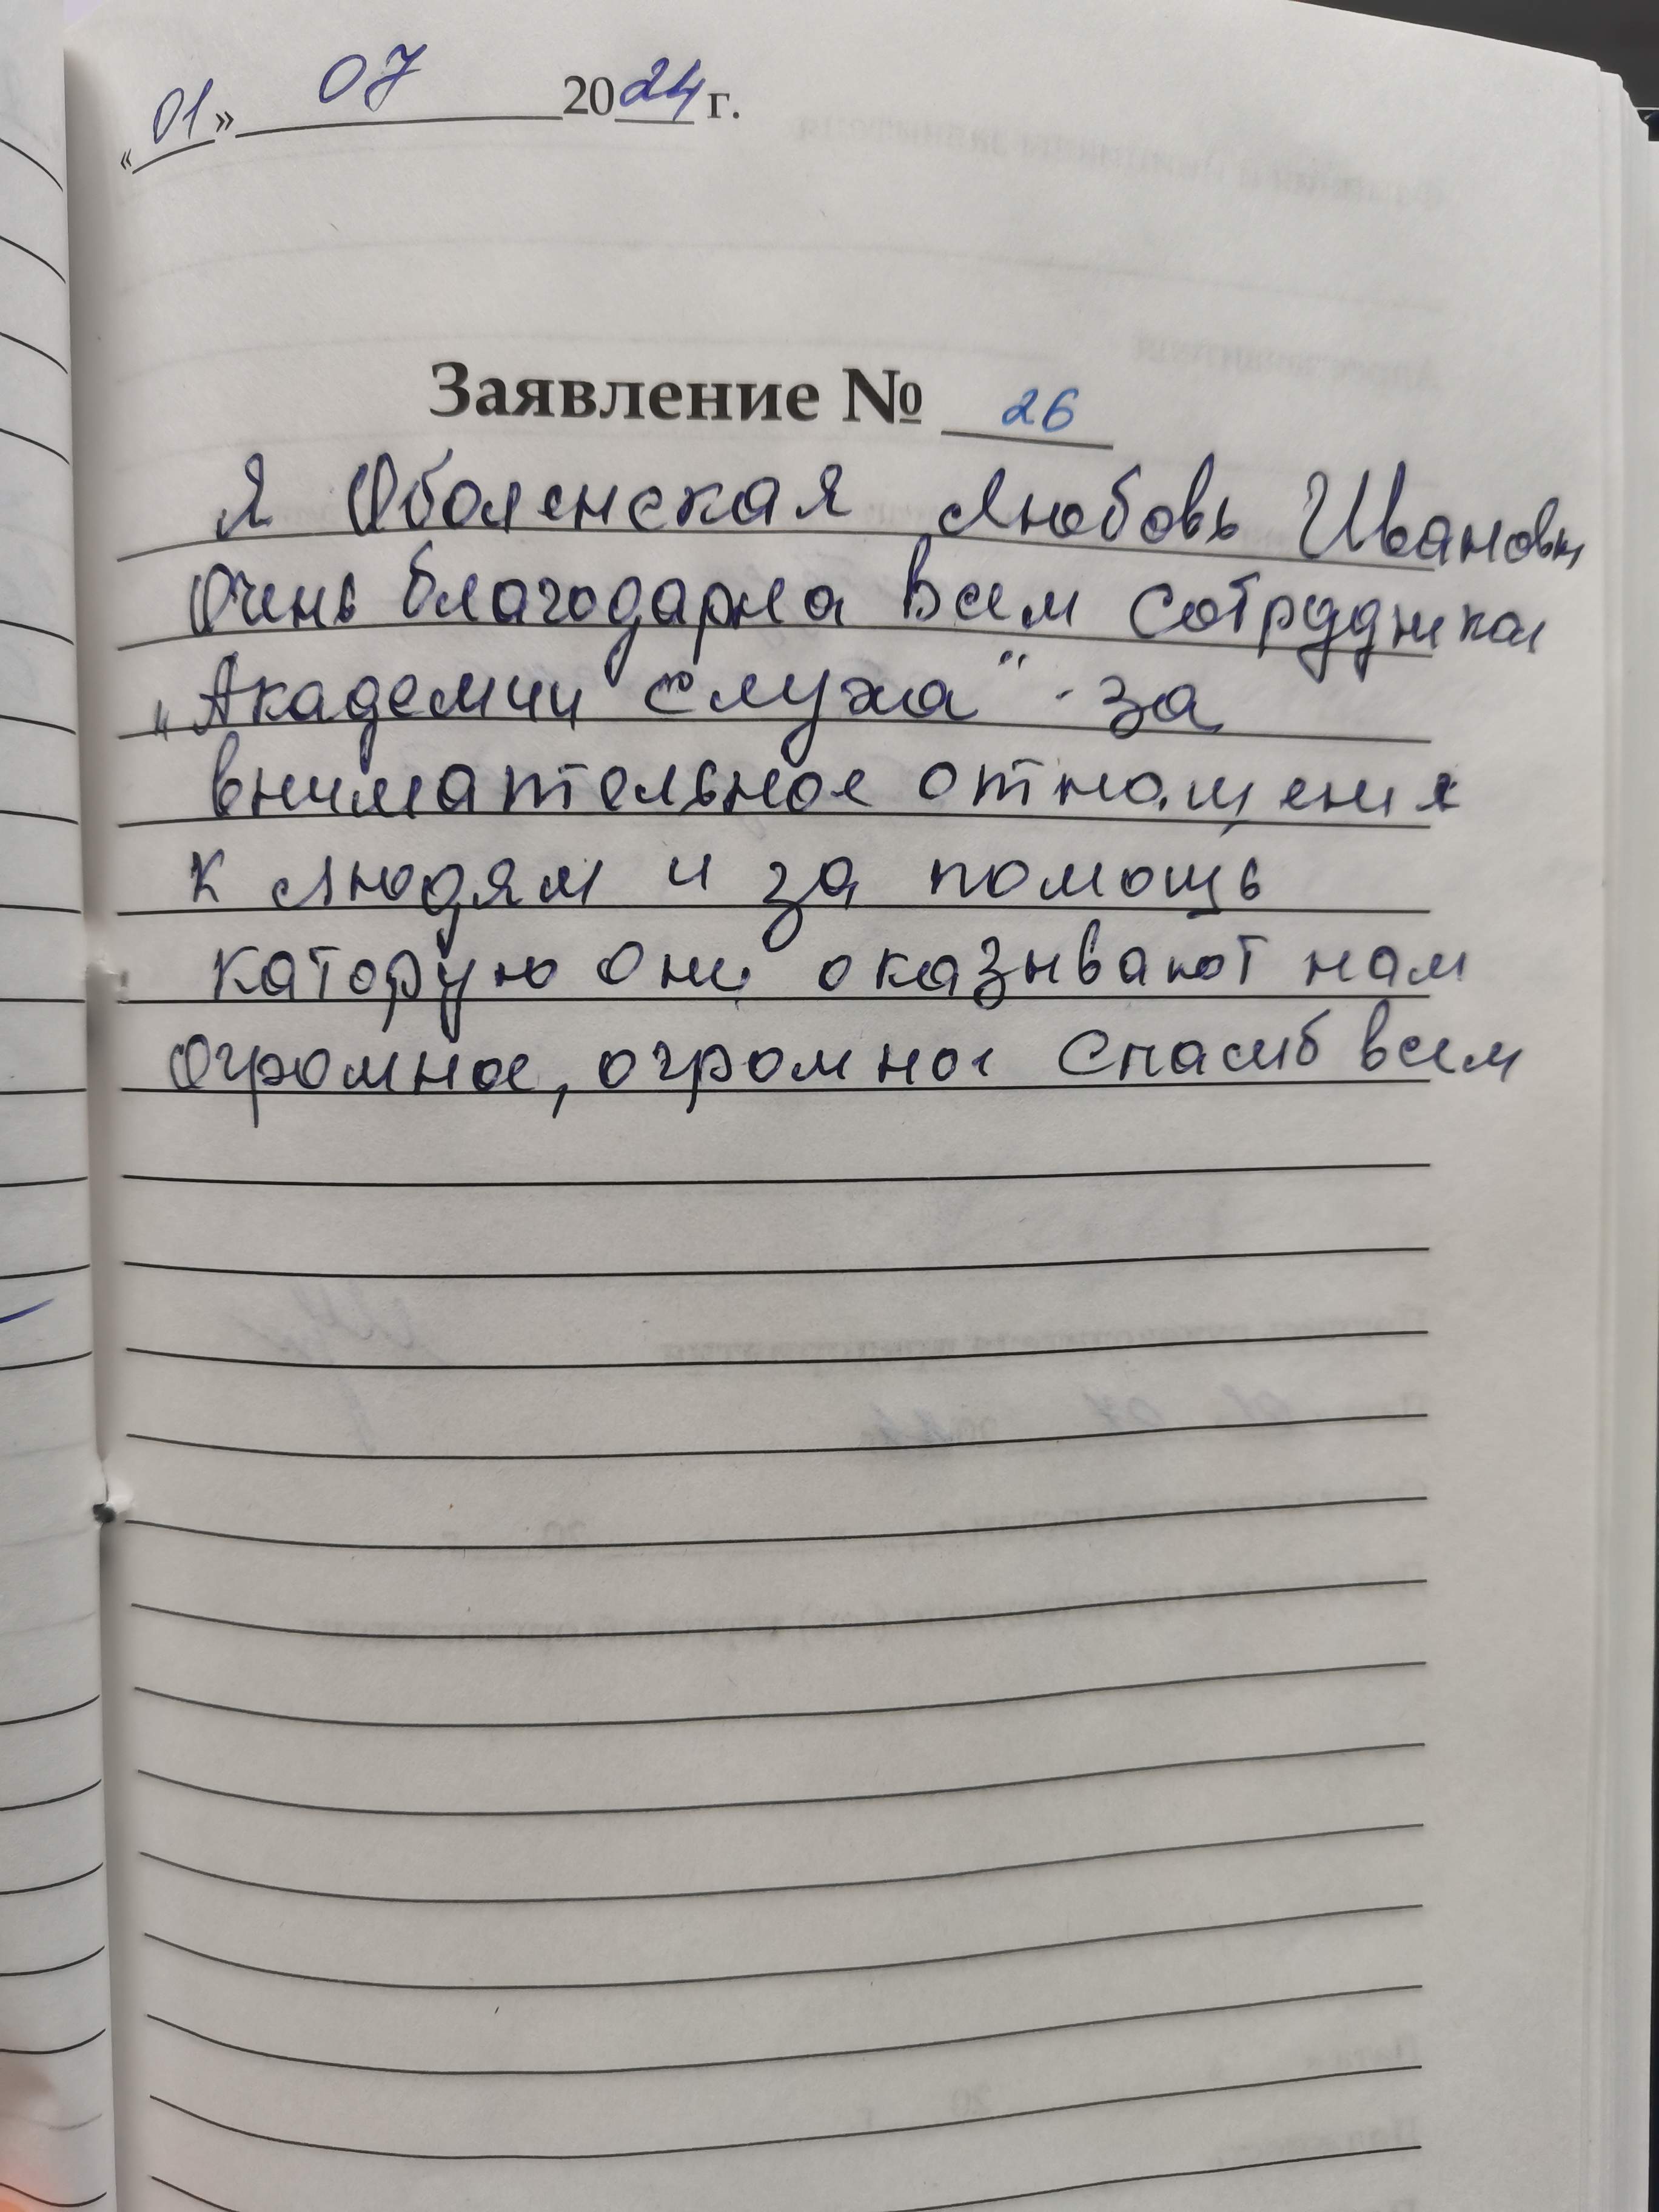 «01» 07 2024 г.
Заявление № 26
Я Оболенская Любовь Ивановн
Очень благодарна Всем сотрудникам
„Академии слуха" - за
внимательное отношения
к людям и за помощь
каторую они оказывают нам
Огромное, огромное Спасиб всем